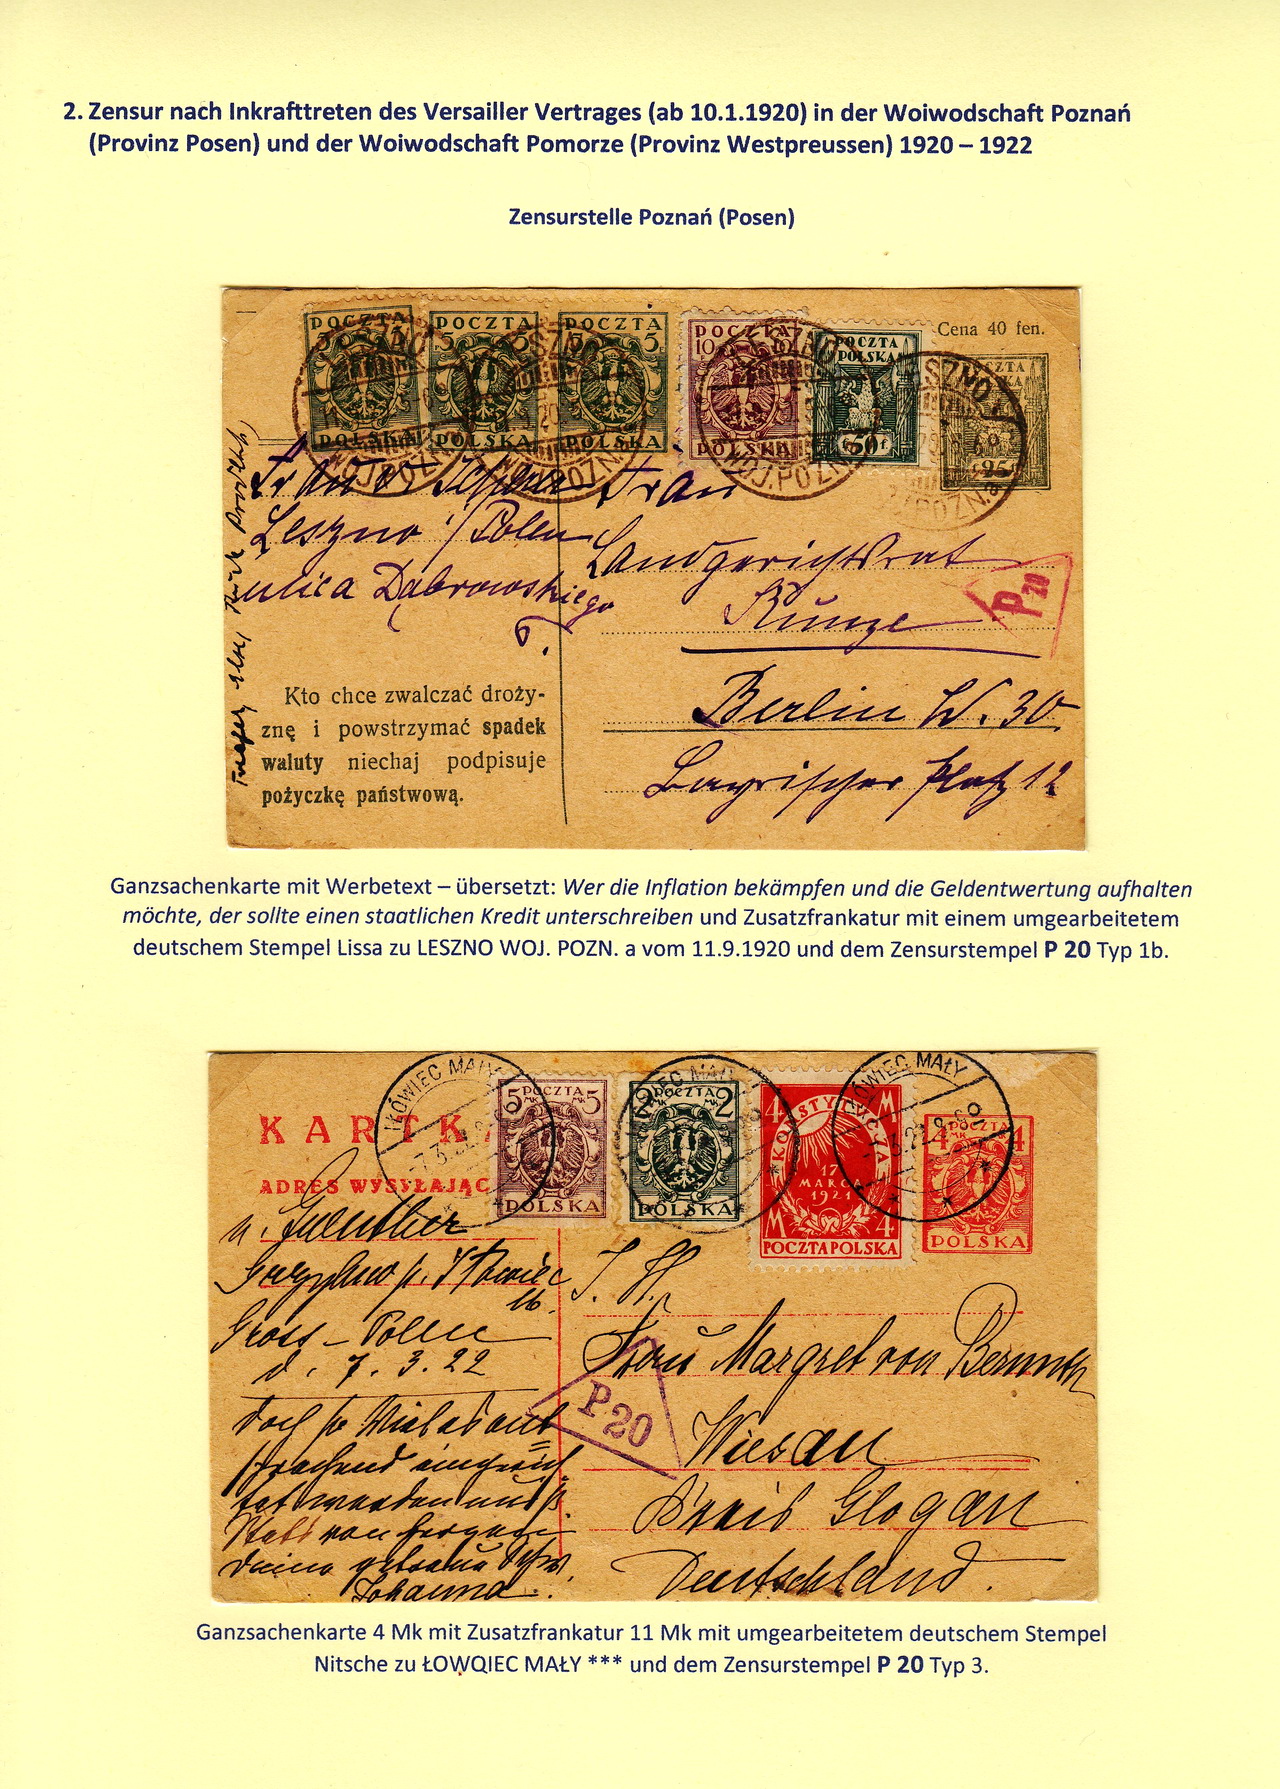 2. Zensur nach Inkrafttreten des Versailler Vertrages (ab 10.1.1920) in der Woiwodschaft Poznań
(Provinz Posen) und der Woiwodschaft Pomorze (Provinz Westpreussen) 1920 – 1922
Zensurstelle Poznań (Posen)
POCZTA POCZTA POCZTA POCZTA
5 5 5 5 5 5 10 10
POLSKA POLSKA POLSKA POLSKA
POCZTA
POLSKA
50 f
Cena 40 fen.
25
LESZNO
WOJ. POZN. a
Leszno / Polen
ulica Dąbrowskiego
6.
Frau
Landgerichtsrat
Kunze
Berlin W. 30
Bayrischer Platz 12
P 20
Kto chce zwalczać droży-
znę i powstrzymać spadek
waluty niechaj podpisuje
pożyczkę państwową.
Ganzsachenkarte mit Werbetext – übersetzt: Wer die Inflation bekämpfen und die Geldentwertung aufhalten
möchte, der sollte einen staatlichen Kredit unterschreiben und Zusatzfrankatur mit einem umgearbeitetem
deutschem Stempel Lissa zu LESZNO WOJ. POZN. a vom 11.9.1920 und dem Zensurstempel P 20 Typ 1b.
KARTKA
ADRES WYSYŁAJĄC
5 POCZTA 5
MK MK
POLSKA
2 POCZTA 2
MK MK
POLSKA
4 M
KONSTYTUCJA
17
MARCA
1921
M 4
POCZTA POLSKA
4 POCZTA 4
MK
POLSKA
ŁOWIEC MAŁY
7.3.22.8-9
n. Guenther
Gross - Polen
d. 7. 3. 22
Johanna.
P 20
Frau Margret von
Wiesau
Kreis Glogau
Deutschland.
Ganzsachenkarte 4 Mk mit Zusatzfrankatur 11 Mk mit umgearbeitetem deutschem Stempel
Nitsche zu ŁOWQIEC MAŁY *** und dem Zensurstempel P 20 Typ 3.